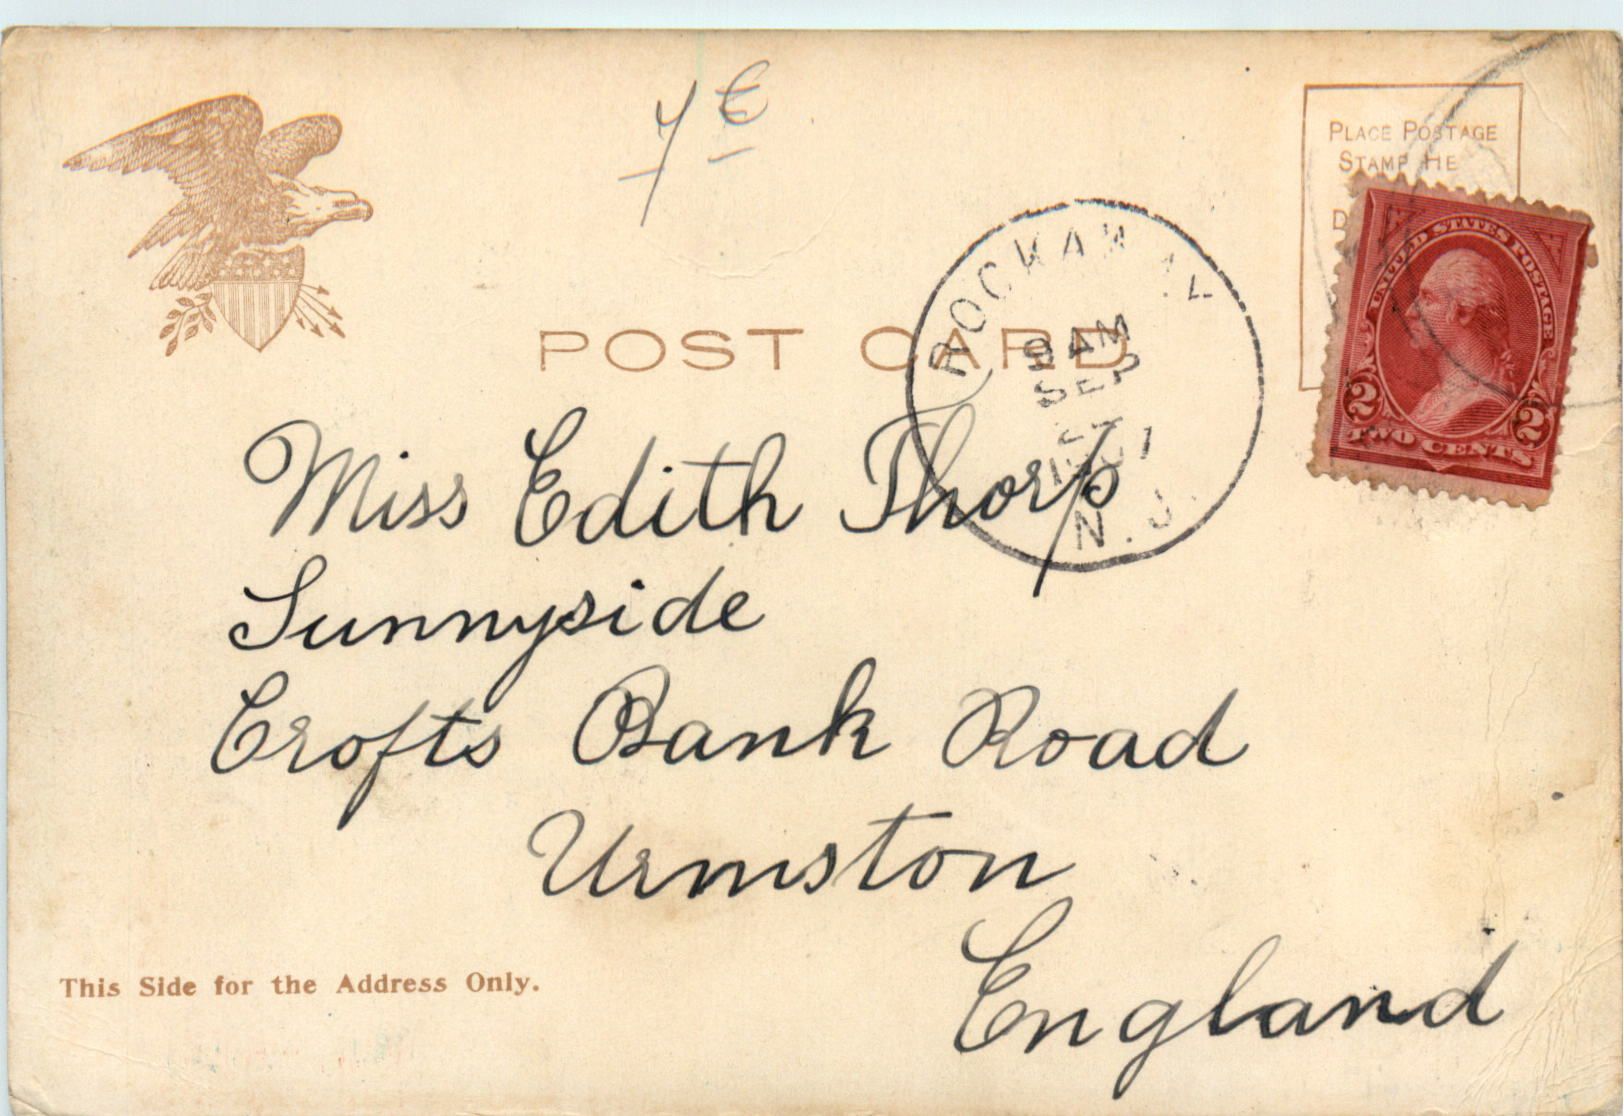 7€
PLACE POSTAGE
STAMP HE
D
UNITED STATES POSTAGE
2 2
TWO CENTS
ROCKAWAY
9 AM
SEP
1901
N.J.
POST CARD
Miss Edith Thorp
Sunnyside
Crofts Bank Road
Urmston
England
This Side for the Address Only.